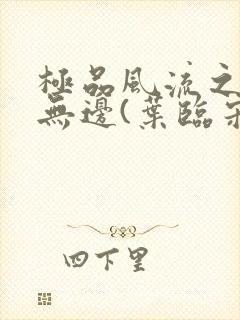 極品風流之
無邊(葉臨
四下里